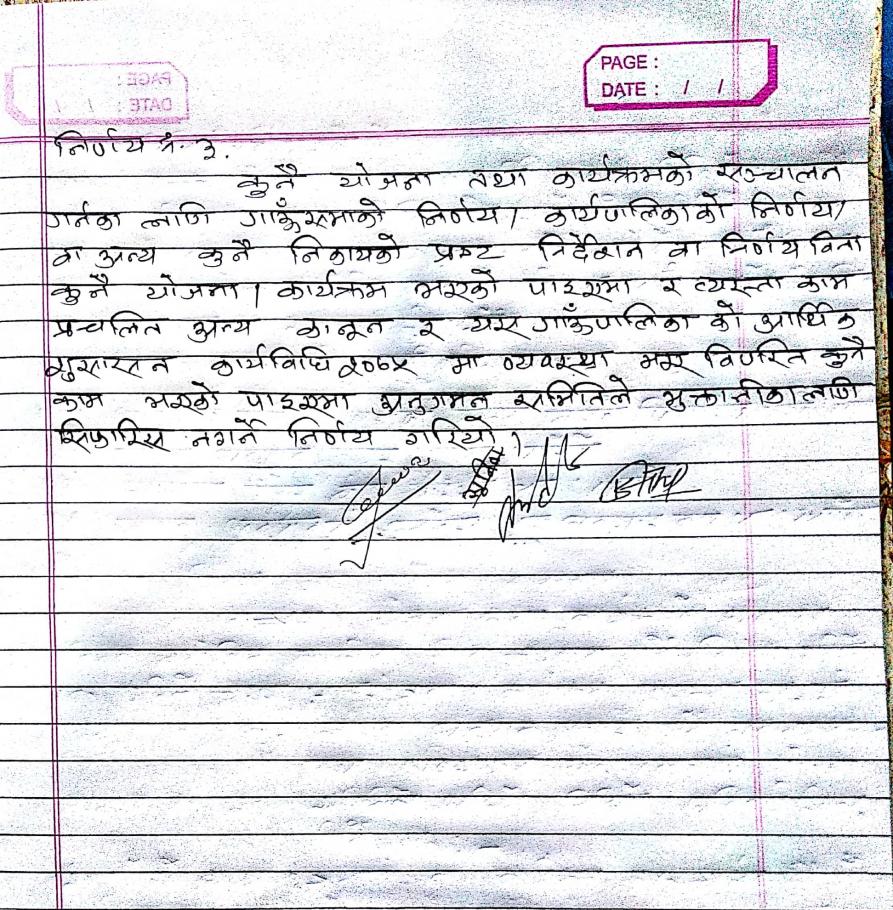 PAGE :
DATE : / /
निर्णय नं. ३.
कुनै योजना तथा कार्यक्रमको सञ्चालन
गर्नका लागि गाउँसभाको निर्णय/ कार्यपालिकाको निर्णय/
वा अन्य कुनै निकायको प्रष्ट निर्देशन वा निर्णय विना
कुनै योजना/ कार्यक्रम भएको पाइएमा र त्यस्ता काम
प्रचलित अन्य कानून र यस गाउँपालिका को आर्थिक
सुसासन कार्यविधि २०७५ मा व्यवस्था भए विपरित कुनै
काम भएको पाइएमा अनुगमन समितिले भुक्तानीका लागि
सिफारिस नगर्ने निर्णय गरियो।